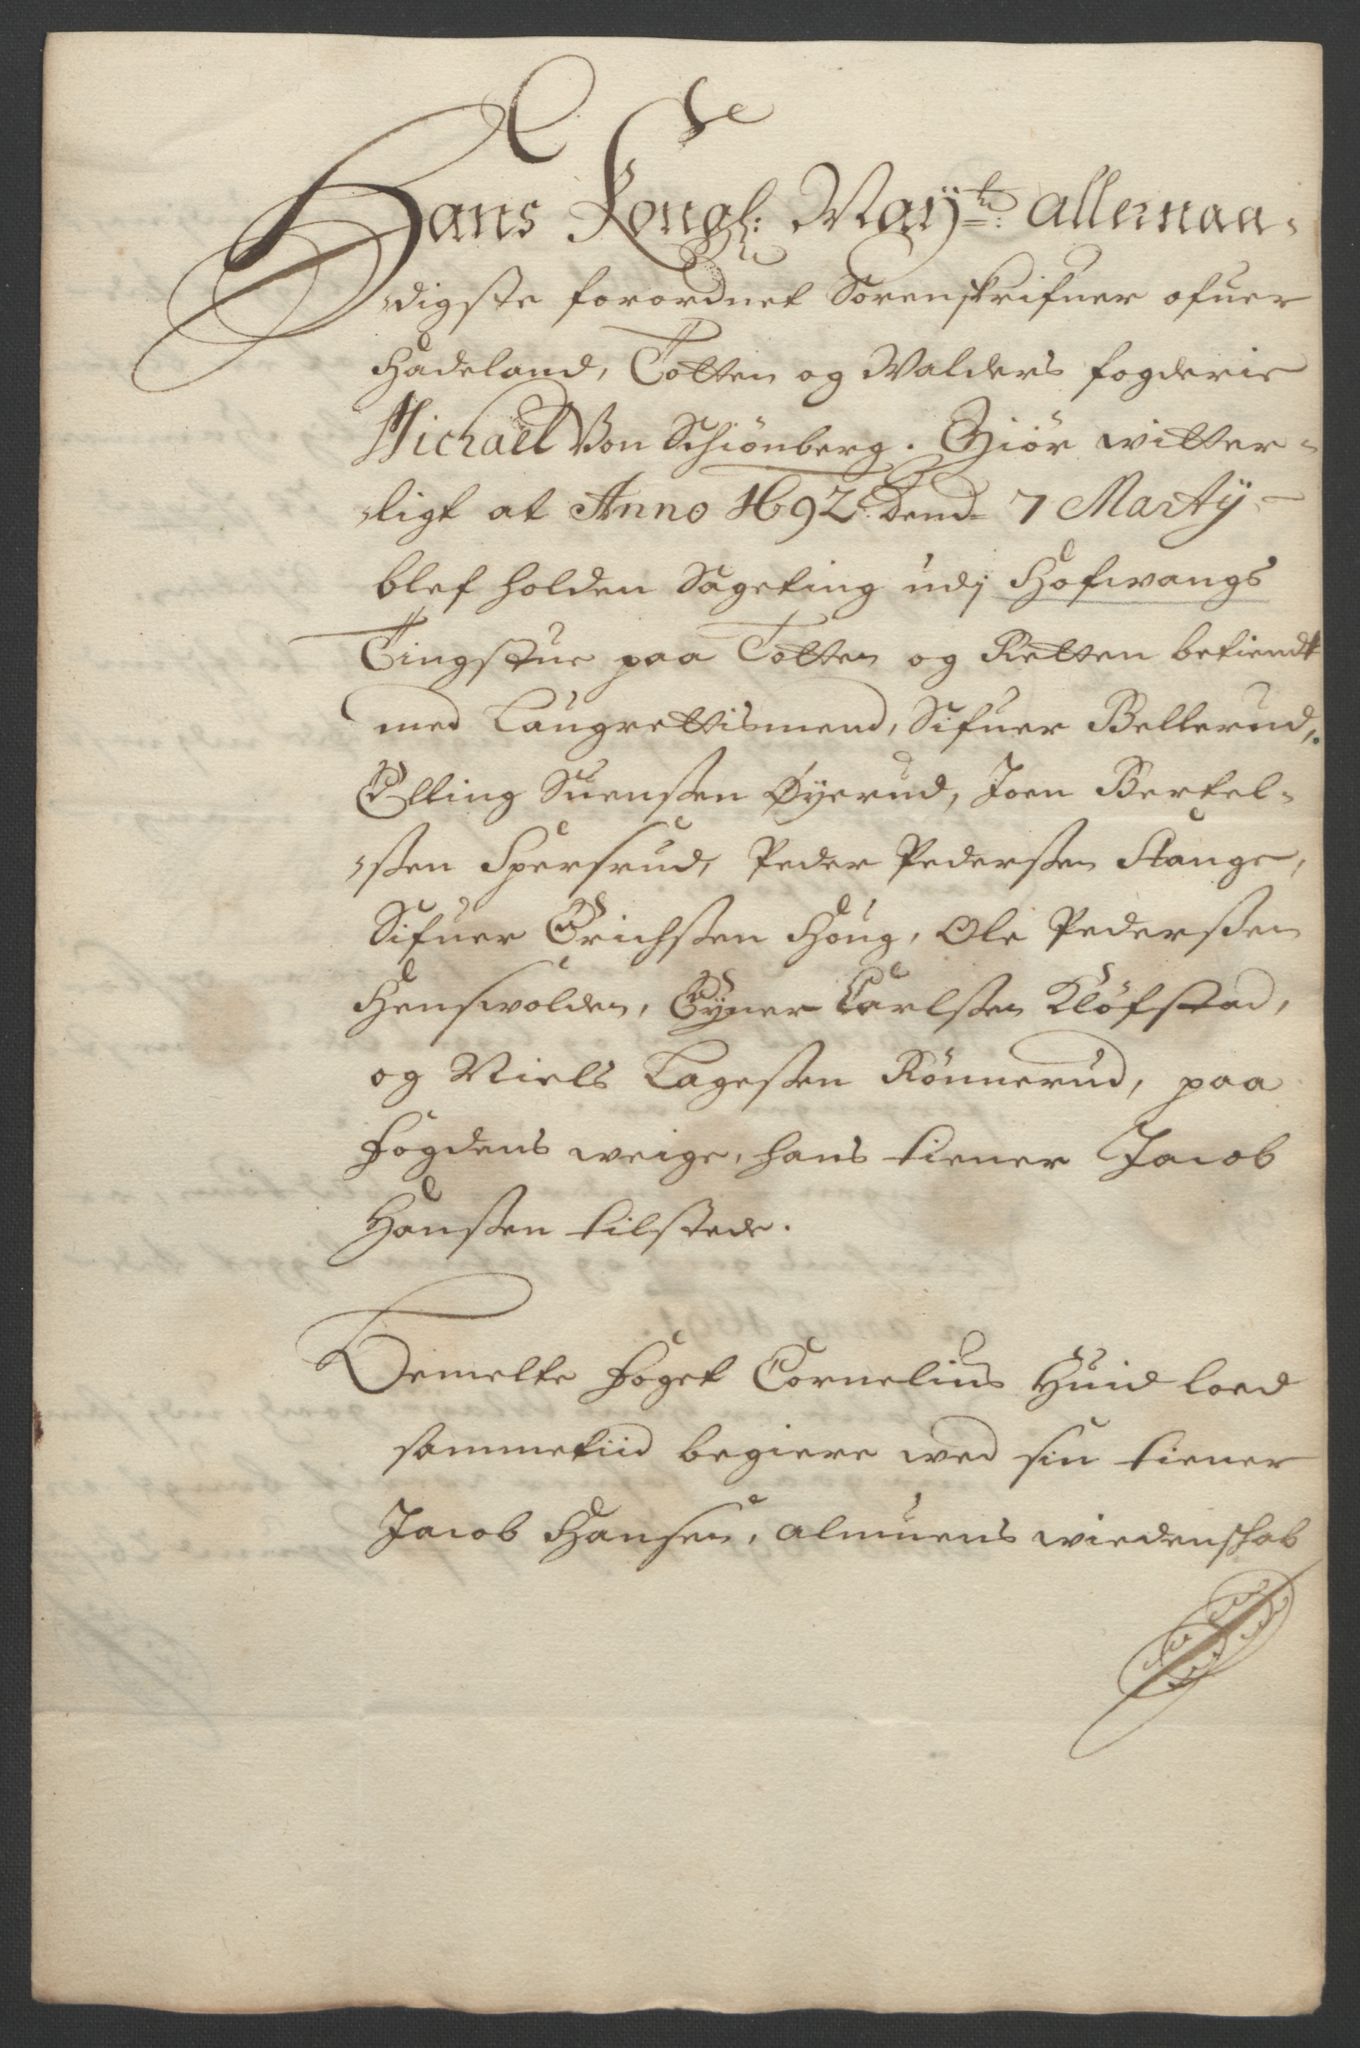 Hans Kongl: May:tz: allernaa-
digste forordnet Sorenskrifuer ofuer
Hadeland, Totten og Walders fogderie
Michaël Von Schiönberg. Giör witter-
ligt at Anno 1692 dend 7 Martÿ
blef holden Sageting udj Hofwangs
Tingstue paa Totten og Retten betiendt
med Laugrettismend, Sifuer Bellerud,
Elling Suenssen Øÿerud, Joen Bertel-
ssen Spersrud, Peder Pederssen Stange,
Sifuer Erichssen Houg, Ole Pederssen
Henswolden, Eÿner Carlssen Klöfstad,
og Niels Lagessen Rönnerud, paa
fogdens weigne, hans tiener Jacob
Hanssen tilstede.
Bemelte foget Cornelius Huid loed
sammetiid begiere wed sin tiener
Jacob Hansen, almuens wiedenskab